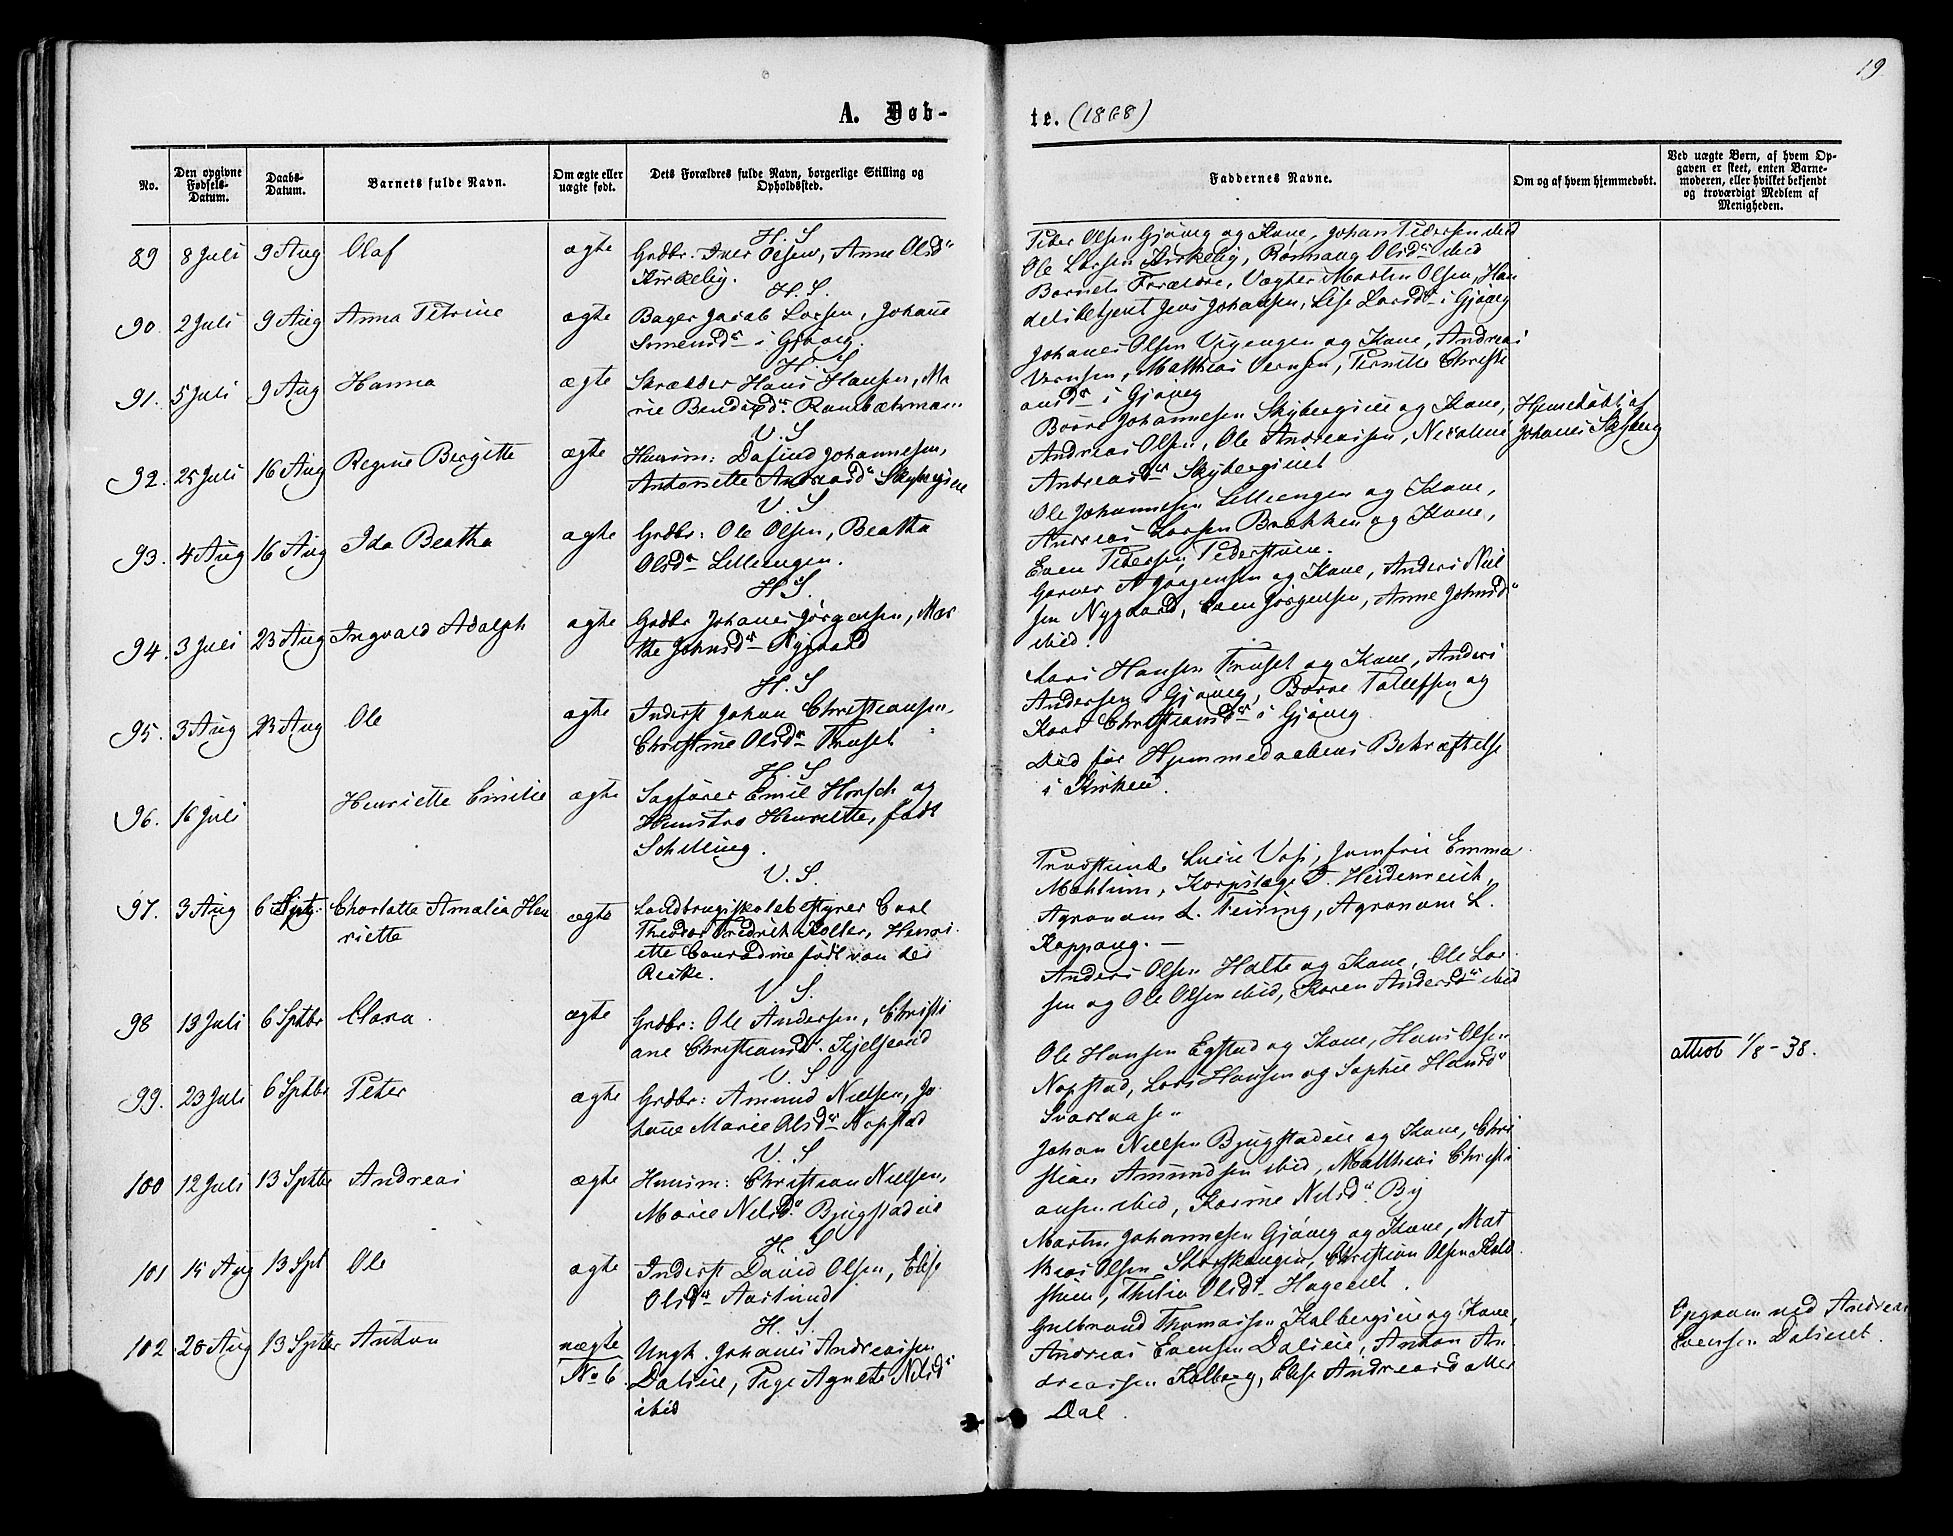 19
A. Døb-
te. (1868)
No.
Den opgivne Fødsels-Datum.
Daabs-Datum.
Barnets fulde Navn.
Om ægte eller uægte født.
Dets Forældres fulde Navn, borgerlige Stilling og Opholdssted.
Faddernes Navne.
Om og af hvem hjemmedøbt.
Ved uægte Børn, af hvem Op-
gaven er skeet, enten Barne-
moderen, eller hvilket bekjendt
og troværdigt Medlem af
Menigheden.
H. S
89 8 Juli 9 Aug Olaf ægte Grdbr. Iver Olsen, Anne Olsdr
Kirkeby.
Peder Olsen Gjøvig og Kone, Johan Pedersen ibid
Ole Larsen Kirkeby, Rønnaug Olsdr ibid
H. S.
90. 2 Juli 9 Aug Anna Petrine ægte Bager Jacob Larsen, Johane
Simensdr i Gjøvig.
Barnets Forældre, Vægter Martin Olsen, Han
delsbetjent Jens Johansen, Lise Larsdr i Gjøvig
H. S
91. 5 Juli 9 Aug Hanna ægte Skrædder Hans Hansen, Ma
rie Bendixdr.
Johanes Olsen Vigengen og Kone, Andreas
Versen, Matthias Versen, Pernille Christi
ansdr i Gjøvig
V. S
92. 25 Juli 16 Aug Regine Birgitte ægte Huusm: Dafind Johannesen,
Antonette Andreasdr Skybergseie
Børre Johannesen Skybergseie og Kone,
Andreas Olsen, Ole Andreassen, Nicoline
Andreasdr Skybergseiet
Hjemedøbt af
Johanes Skyberg
V. S
93. 4 Aug 16 Aug Ida Beatha ægte Grdbr: Ole Olsen, Beatha
Olsdr Lilleengen.
Ole Johannesen Lilleengen og Kone,
Andreas Larsen Brækken og Kone,
Even Pedersen Pederstuen.
H. S.
94. 3 Juli 23 Aug Ingvald Adolph ægte Grdbr Johanes Jørgensen, Mar
the Johnsdr Nygaard
Garver A Jørgensen og Kone, Anders Niel
sen Nygaard, Even Jørgensen, Anne Johnsdr
ibid.
H. S
95. 3 Aug 23 Aug Ole ægte Inderst Johan Christiansen,
Christine Olsdr Thuset
Lars Hansen Thuset og Kone, Anders
Andersen i Gjøvig, Børre Tollefsen og
Kari Christiansdr i Gjøvig
H. S
96. 16 Juli Henriette Emilie ægte Sagfører Emil Horsch og
Hustro Henriette, født
Schilling.
Død før Hjemmedaabens Bekræftelse
i Kirken.
V. S.
97. 3 Aug 6 Sptz. Charlotte Amalia Hen
riette ægte Landbrugsskolebestyrer Carl
Theodor Fredrik Kolter, Henri
ette Conradine født von der
Recke.
Provstinde Lucie Voss, Jomfru Emma
Mohlum, Korpslæge T. Heidenreich,
Agronom L. Feiring, Agronom L.
Koppang. —
V. S.
98 13 Juli 6 Sptbr Clara. ægte Grdbr: Ole Andersen, Christi
ane Christiansdr. Kjelserud
Anders Olsen Holte og Kone, Ole Lar
sen og Ole Olsen ibid, Karen Andersdr ibid
V. S.
99. 23 Juli 6 Sptbr Peter ægte Grdbr: Amund Nielsen, Jo
hane Marie Olsdr Nopstad
Ole Hansen Egstad og Kone, Hans Olsen
Nopstad, Lars Hansen og Sophie Hansdr
Svartaasen
attest 1/8-38.
V. S
100 12 Juli 13 Sptbr Andreas ægte Huusm: Christian Nielsen,
Marie Nilsdr. Bjugstadeie
Johan Nielsen Bjugstadeie og Kone, Chri
stian Amundsen ibid, Matthias Christi
ansen ibid, Karine Nilsdr. By
H. S
101 15 Aug 13 Spt Ole ægte Inderst David Olsen, Elise
Olsdr Aaslund
Martin Johannesen Gjøvig og Kone, Mat
thias Olsen, Christian Olsen
Olsdr Hageeiet.
H. S.
102. 20 Aug 13 Sptbr Anton uægte
No 6.
Ungk. Johanes Andreassen
Dalseie, Pige Agnethe Nilsdr
ibid
Gulbrand Thomassen Kalbergseie og Kone,
Andreas Evensen Dalseie, Anton An-
dreassen Kalberg, Else Andreasd
Dal.
Opgaven ved Andreas
Evensen Dalseiet.